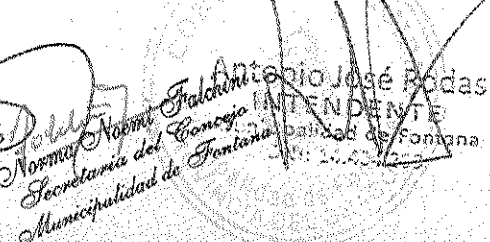 Norma Noemi Falchini
Secretaria del Concejo
Municipalidad de Fontana
Antonio José Rodas
INTENDENTE
Municipalidad de Fontana